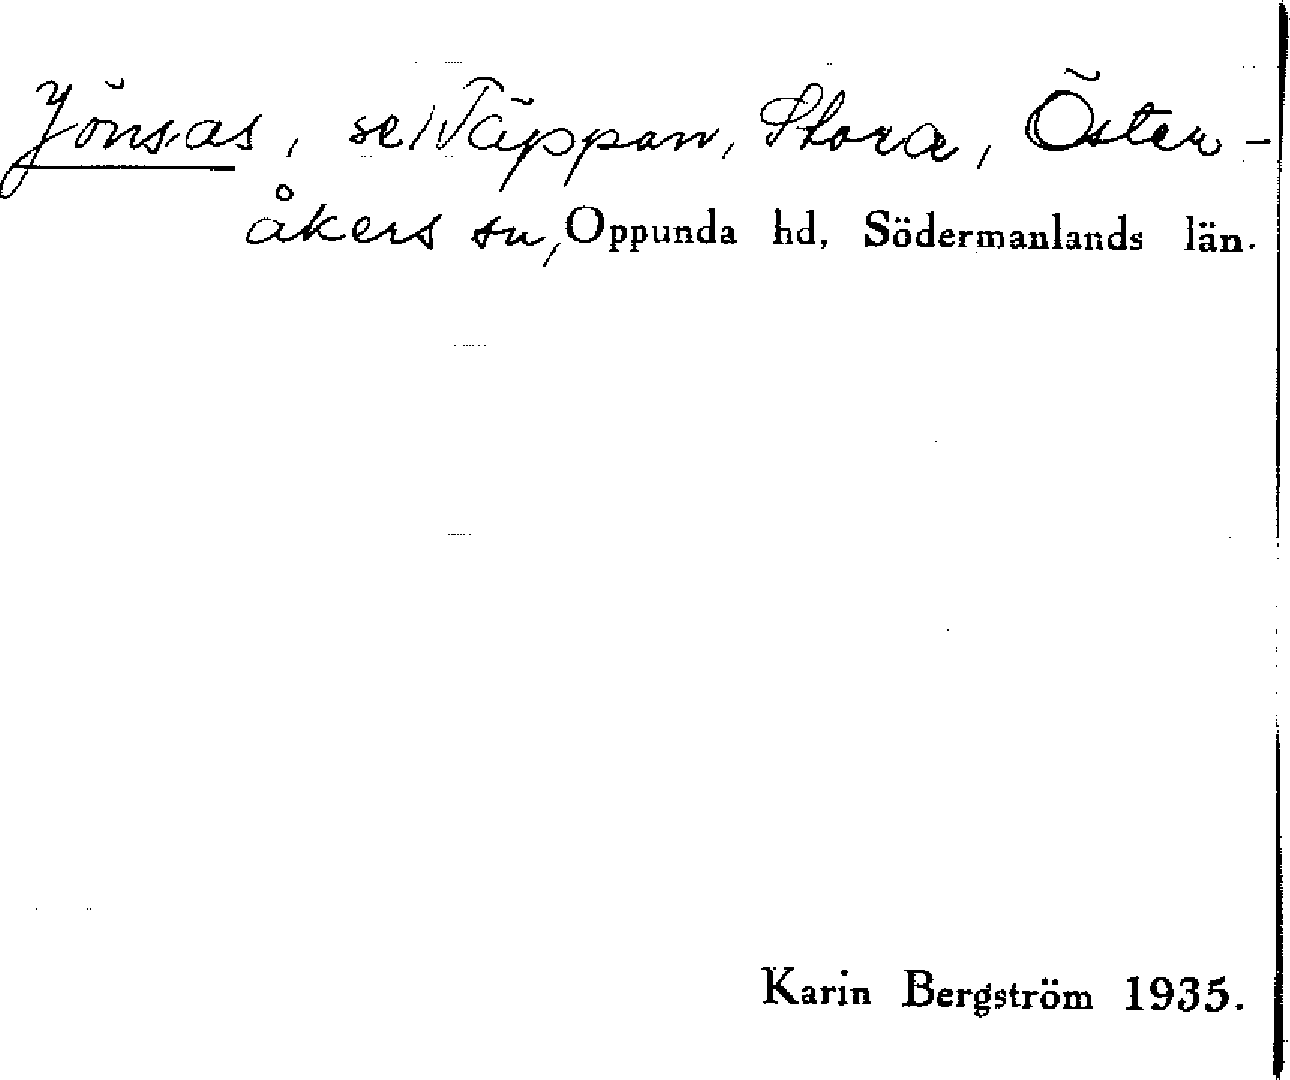 Jönsas, se Täppan, Stora, Öster-
åkers sn, Oppunda hd, Södermanlands län.
Karin Bergström 1935.